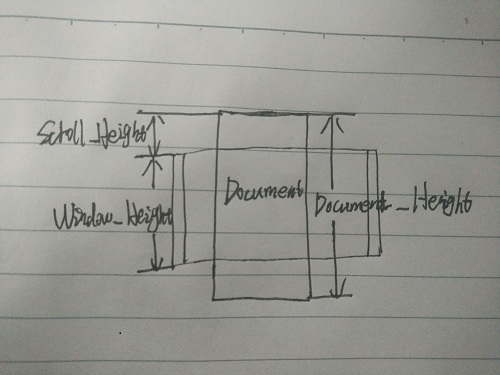 Scroll_Height
Document
Document_Height
Window_Height